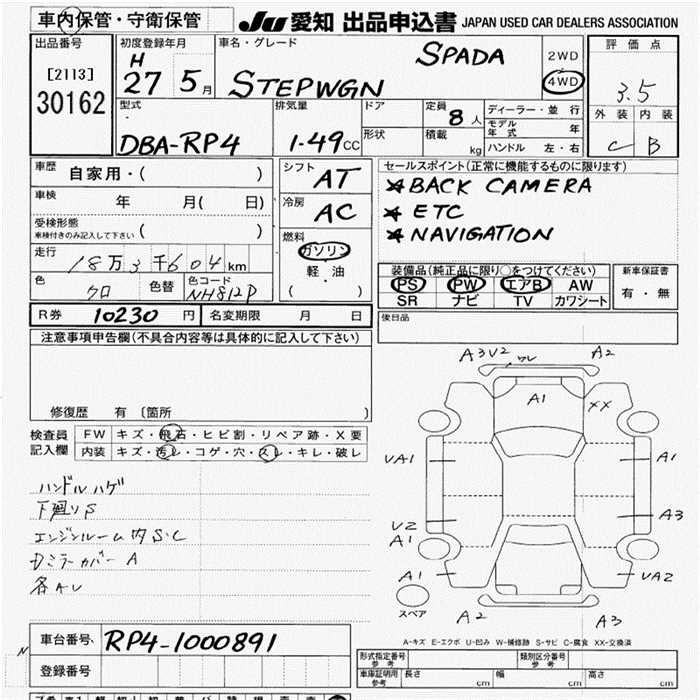 車内保管・守衛保管
JU 愛知 出品申込書 JAPAN USED CAR DEALERS ASSOCIATION
出品番号
[2113]
30162
初度登録年月
H
27 5月
車名・グレード
SPADA
STEPWGN
2WD
4WD
評価点
3.5
外装 内装
C B
型式
DBA-RP4
排気量
1.49cc
ドア
形状
定員 8人
積載 kg
ディーラー・並行
モデル年式 年
ハンドル 左・右
車歴 自家用・( )
車検 年 月( 日)
受検形態
車検付きのみ記入して下さい ( )
走行
18万3千604km
色
クロ
色替
色コード
NH812P
シフト
AT
冷房
AC
燃料
ガソリン
軽・油
( )
セールスポイント(正常に機能するものに限ります)
★BACK CAMERA
★ETC
★NAVIGATION
装備品(純正品に限り○をつけてください)
PS PW エアB AW
SR ナビ TV カワシート
新車保証書
有・無
R券 10230円 名変期限 月 日
後日品
注意事項申告欄(不具合内容等は具体的に記入して下さい)
修復歴 有 〔箇所 〕
検査員記入欄
FW キズ・飛石・ヒビ割・リペア跡・X要
内装 キズ・汚レ・コゲ・穴・スレ・キレ・破レ
ハンドルハゲ
下廻りS
エンジンルーム内S・C
Dミラカバー A
各AU
A3V2 ワレ A2
A1
XX
UA1
A1
U2
A1
A3
A1
UA2
スペア
A2
A3
A-キズ E-エクボ U-凹み W-補修跡 S-サビ C-腐食 XX-交換済
車台番号 RP4-1000891
登録番号
N
形式指定番号
参考
類別区分番号
参考
車庫証明用
参考
長さ cm 幅 cm 高さ cm